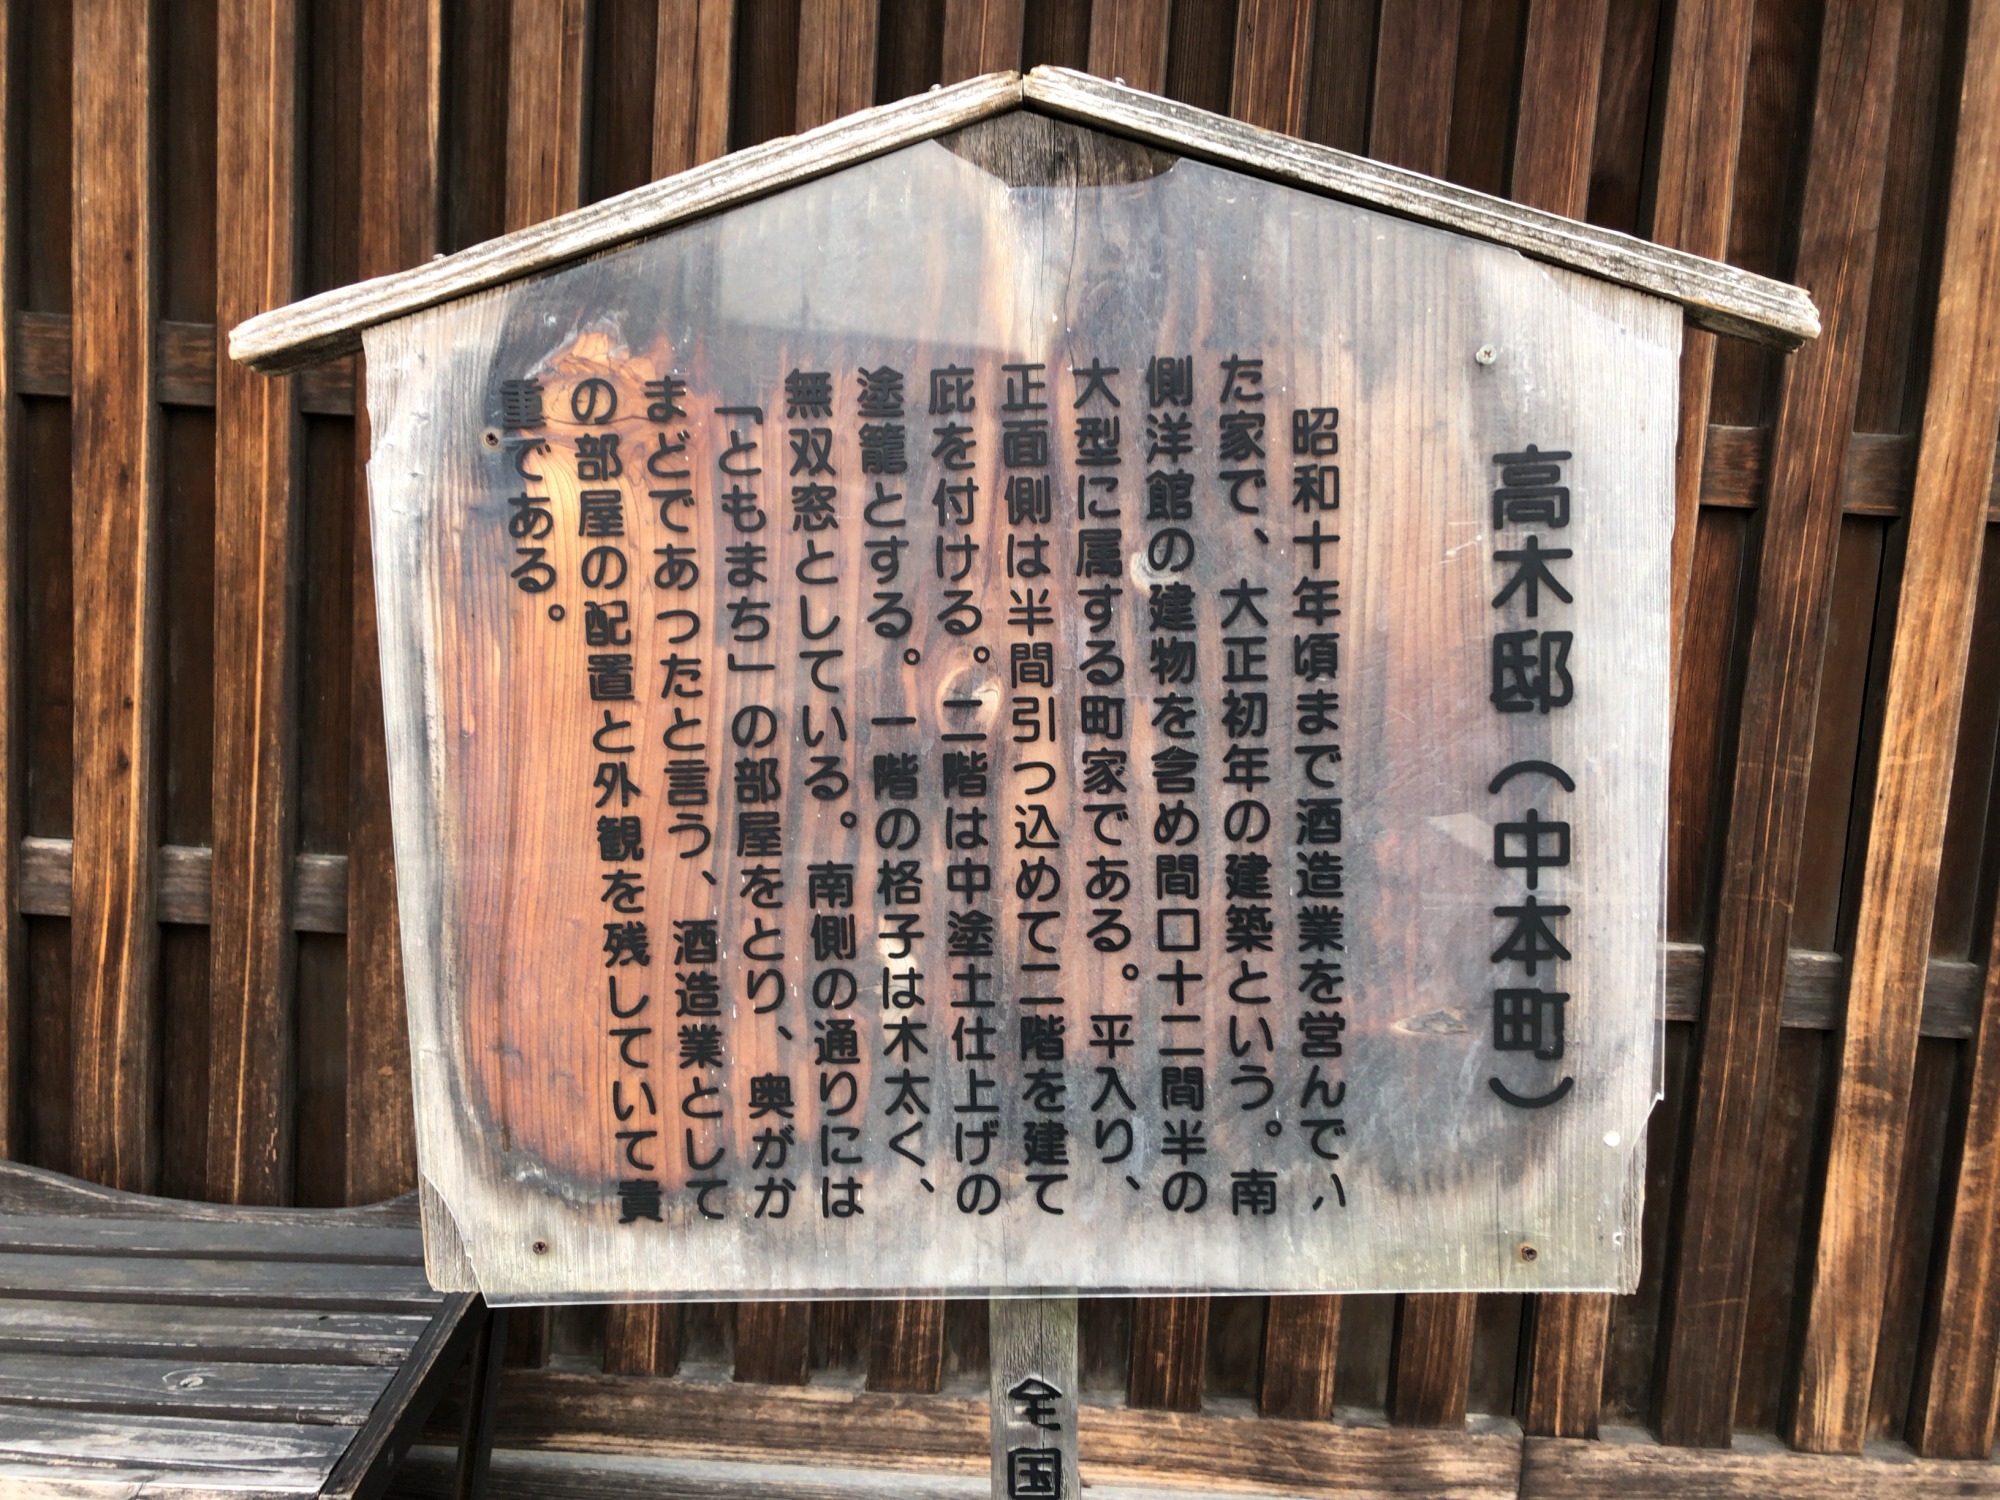 高木邸（中本町）
昭和十年頃まで酒造業を営んでい
た家で、大正初年の建築という。南
側洋館の建物を含め間口十二間半の
大型に属する町家である。平入り、
正面側は半間引っ込めて二階を建て
庇を付ける。二階は中塗土仕上げの
塗籠とする。一階の格子は木太く、
無双窓としている。南側の通りには
「ともまち」の部屋をとり、奥がか
まどであつたと言う、酒造業として
の部屋の配置と外観を残していて貴
重である。
全国